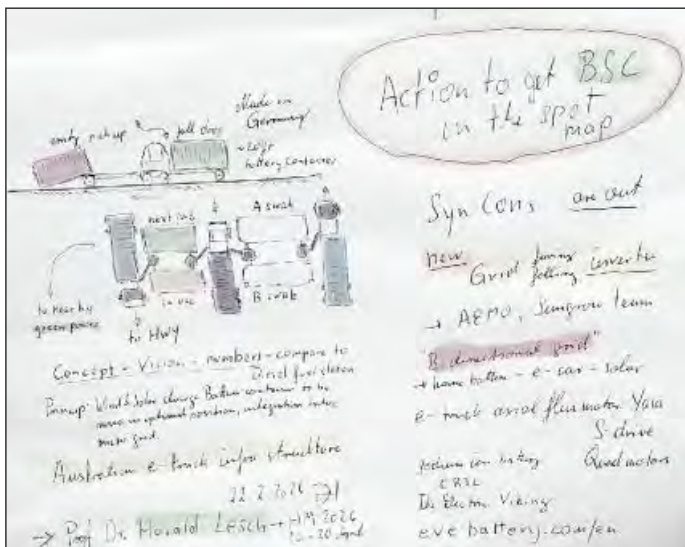 empty pick up
full drop
Made in
Germany
battery container
next in
A swab
in use
B swab
to near by
green power
to HWY
Concept - Vision - numbers - compare to
Diesel fuel station
Wind & Solar charge Battery container to be
move in optional position, integration
micro grid.
Australian e-truck infra structure
22.2.2026
→ Prof Dr. Harald Lesch
2026
Action to get BSC
in the spot
map
Syn Cons are out
new
Grid forming
following inverter
→ AEMO, Sungrow team
"Bidirectional grid"
→ home battery - e-car - solar
e-truck axial flux motor Yasa
S-drive
Quad motors
ion battery
Electric Viking
eve battery